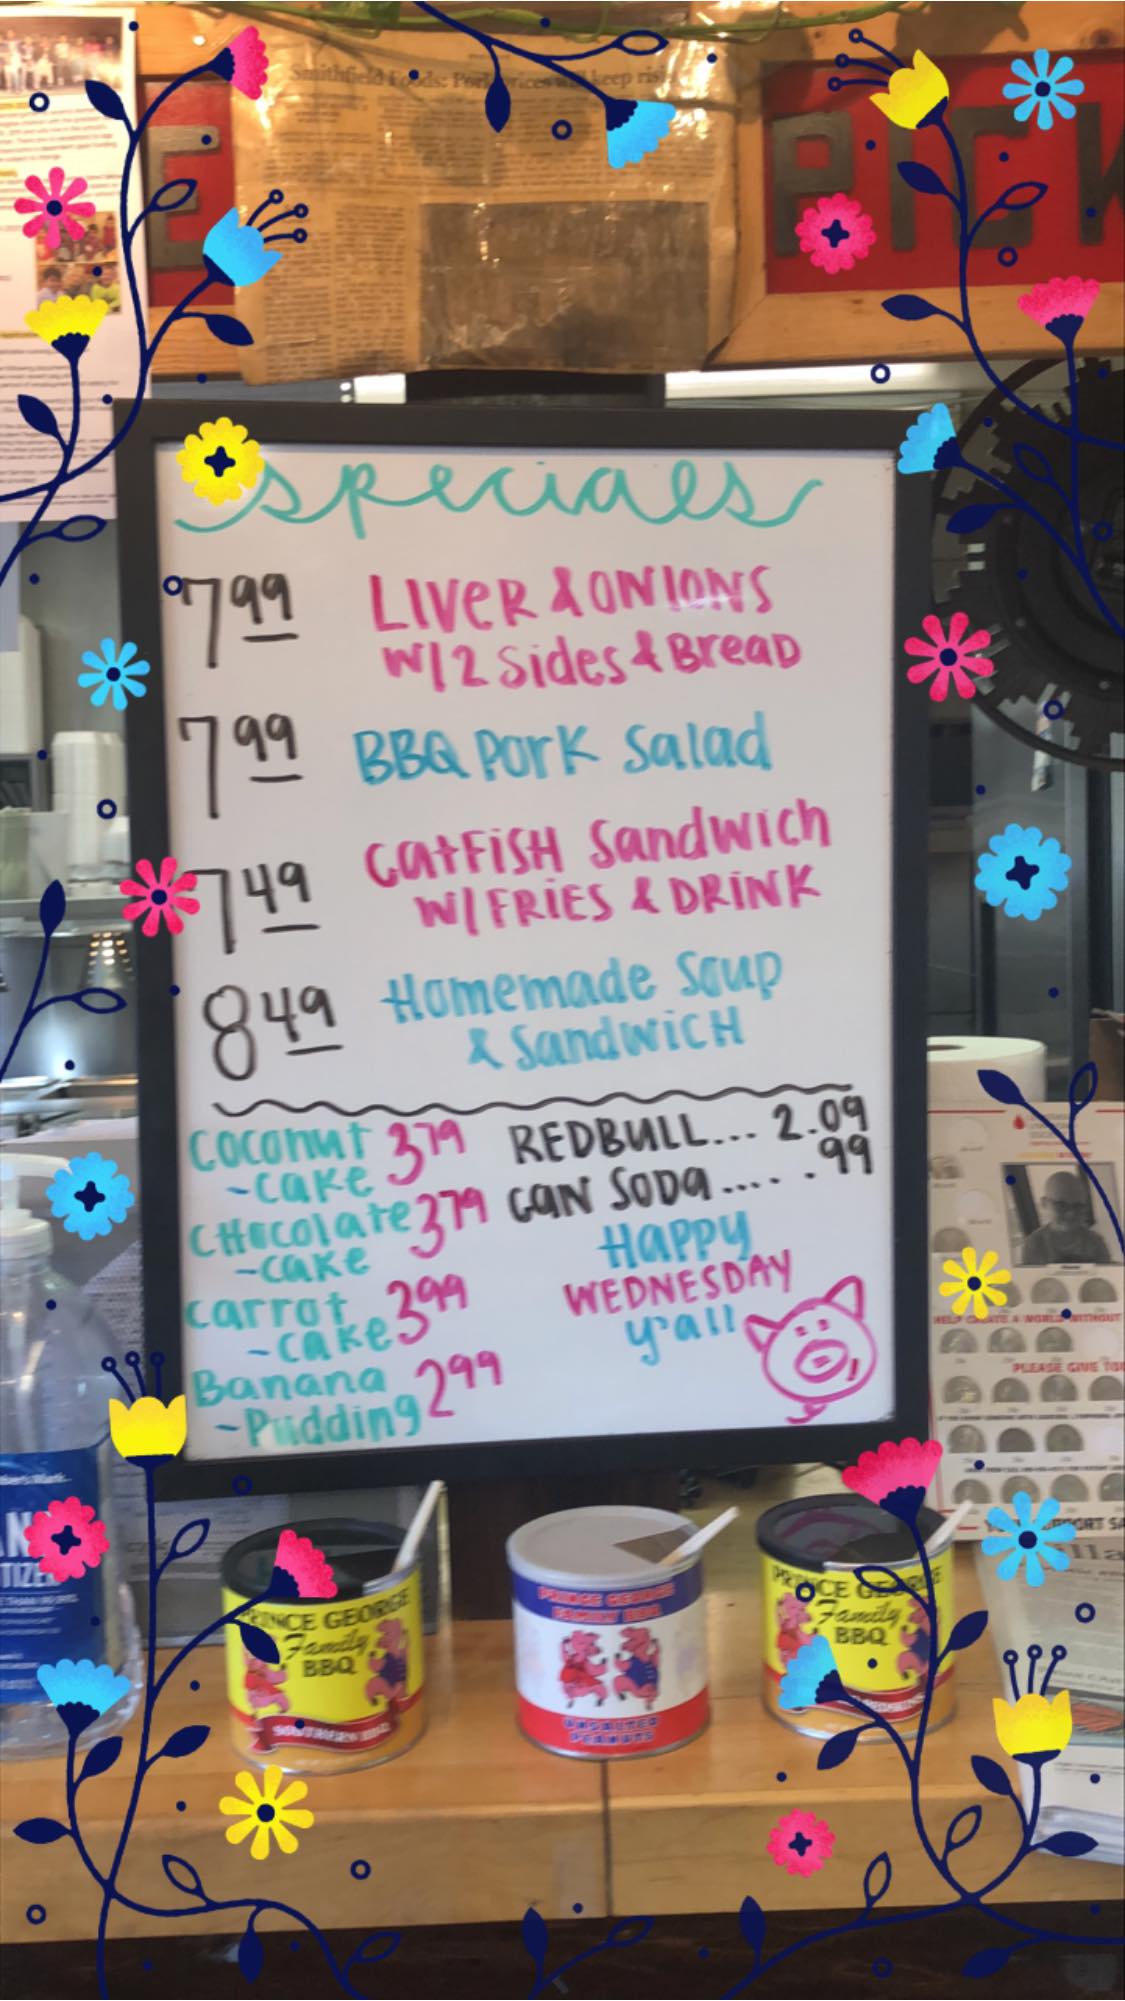 Smithfield Foods: Pork prices will keep rising
E
PICK
specials
7.99 LIVER & ONIONS
W/2 Sides & Bread
7.99 BBQ Pork Salad
7.49 Catfish Sandwich
W/FRIES & DRINK
8.49 Homemade Soup
& Sandwich
Coconut 3.79
~Cake
Chocolate 3.79
~Cake
Carrot 3.99
~Cake
Banana 2.99
~Pudding
REDBULL... 2.09
CAN SODA.... .99
Happy
WEDNESDAY
y'all
PRINCE GEORGE
Family
BBQ
SOUTHERN BBQ
PRINCE GEORGE
FAMILY BBQ
UNSALTED
PEANUTS
PRINCE GEORGE
Family
BBQ
HELP CREATE A WORLD WITHOUT
PLEASE GIVE